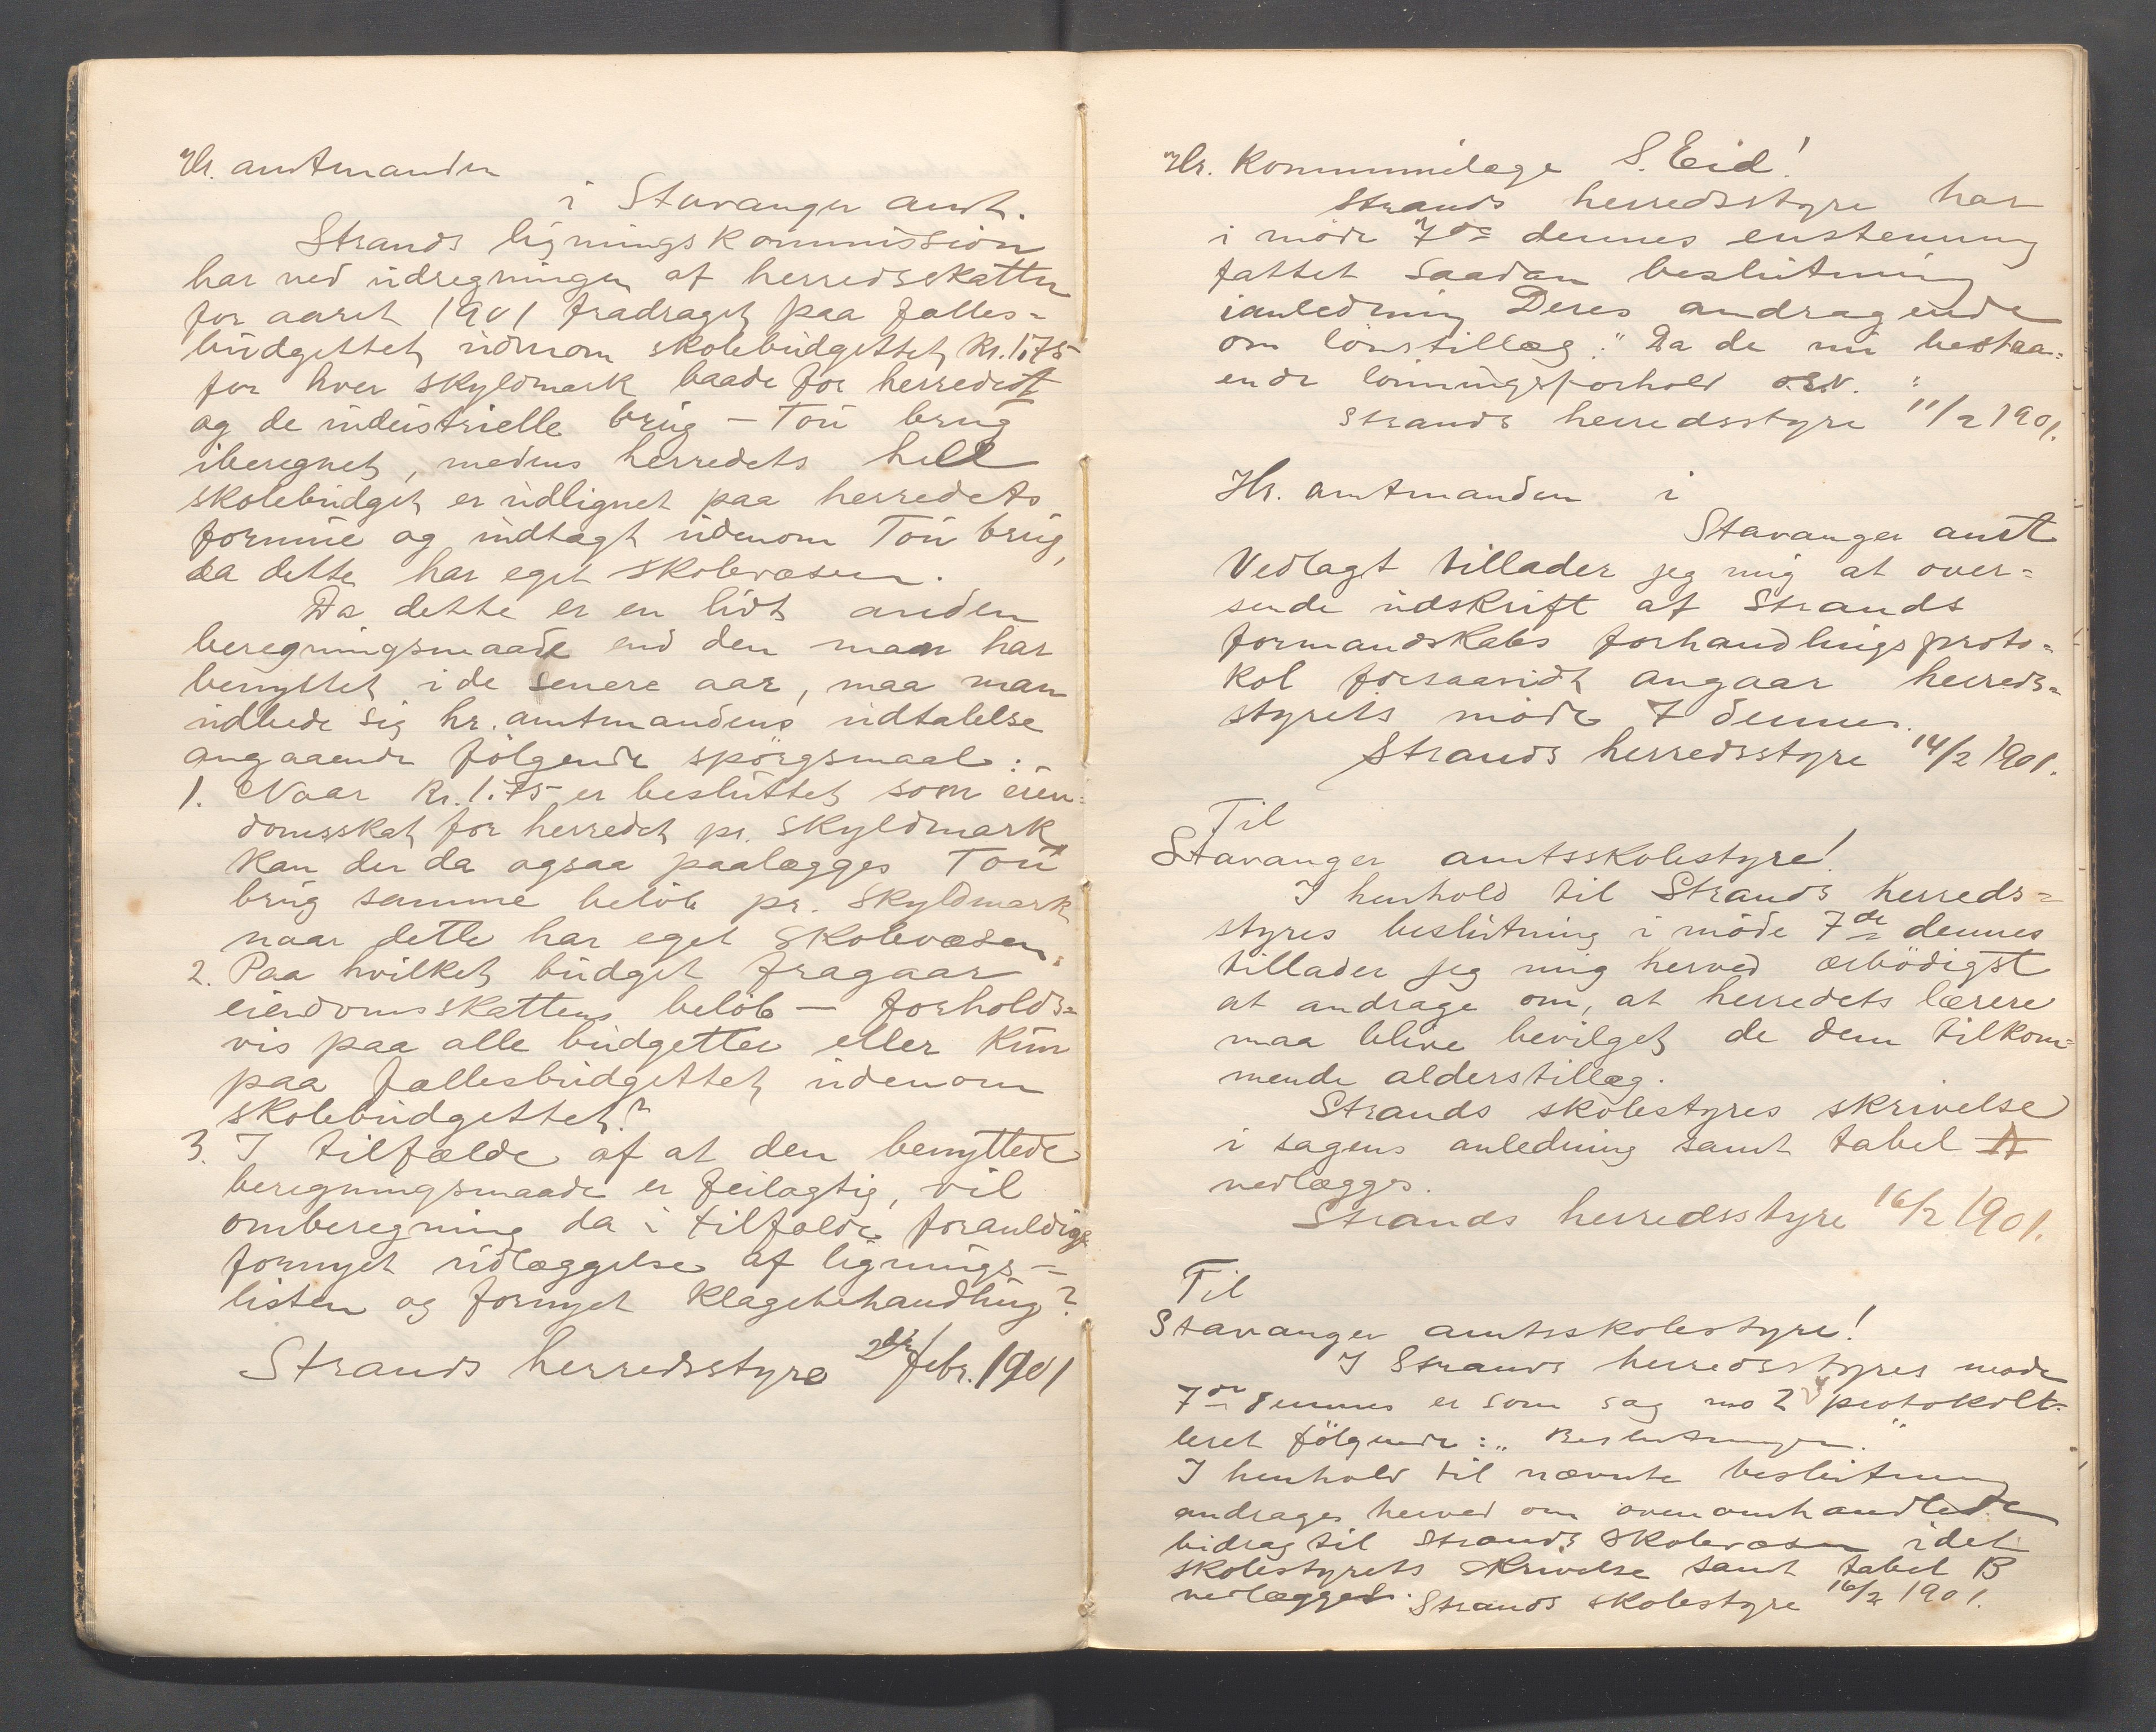 Hr. amtmanden
i Stavanger amt.
Strands ligningskommission
har ved udregningen af herredsskatten
for aaret 1901 fradraget paa fælles-
budgettet udenom skolebudgettet kr. 1.75
for hver skyldmark baade for herredet
og de industrielle brug – Tou brug
iberegnet, medens herredets hele
skolebudget er udlignet paa herredets
formue og indtægt udenom Tou brug,
da dette har eget skolevæsen.
Da dette er en lidt anden
beregningsmaade end den man har
benyttet i de senere aar, maa man
udbede sig hr. amtmandens udtalelse
angaaende følgende spørgsmaal:
1. Naar kr. 1.75 er besluttet som eien-
domsskat for herredet pr. skyldmark
kan der da ogsaa paalægges Tou
brug samme beløb pr. skyldmark
naar dette har eget skolevæsen.
2. Paa hvilket budget fragaar
eiendomsskattens beløb – forholds-
vis paa alle budgetter eller kun
paa fællesbudgettet udenom
skolebudgettet?
3. I tilfælde af at den benyttede
beregningsmaade er feilagtig, vil
omberegning da i tilfælde foranledige
fornyet udlæggelse af lignings-
listen og fornyet klagebehandling?
Strands herredsstyre febr. 1901
Hr. Kommunelæge S. Eid!
Strands herredsstyre har
i møde 7de dennes enstemmig
fattet saadan beslutning
ianledning Deres andragende
om lønstillæg: "Da de nu bestaa-
ende lønningsforhold o.s.v. "
Strands herredsstyre 11/2 1901.
Hr. amtmanden i
Stavanger amt
Vedlagt tillader jeg mig at over-
sende udskrift af Strands
formandskabs forhandlingsproto-
kol forsaavidt angaar herreds-
styrets møde 7 dennes.
Strands herredsstyre 14/2 1901.
Til
Stavanger amtsskolestyre!
I henhold til Strands herreds-
styres beslutning i møde 7de dennes
tillader jeg mig herved ærbødigst
at andrage om, at herredets lærere
maa blive bevilget de dem tilkom-
mende alderstillæg.
Strands skolestyres skrivelse
i sagens anledning samt tabel A
vedlægges.
Strands herredsstyre 16/2 1901.
Til
Stavanger amtsskolestyre!
I Strands herredsstyres møde
7de dennes er som sag no 2 protokol-
leret følgende: „Beslutningen."
I henhold til nævnte beslutning
andrages herved om ovenomhandlede
bidrag til Strands skolevæsen idet
skolestyrets skrivelse samt tabel B
vedlægges. Strands skolestyre 16/2 1901.